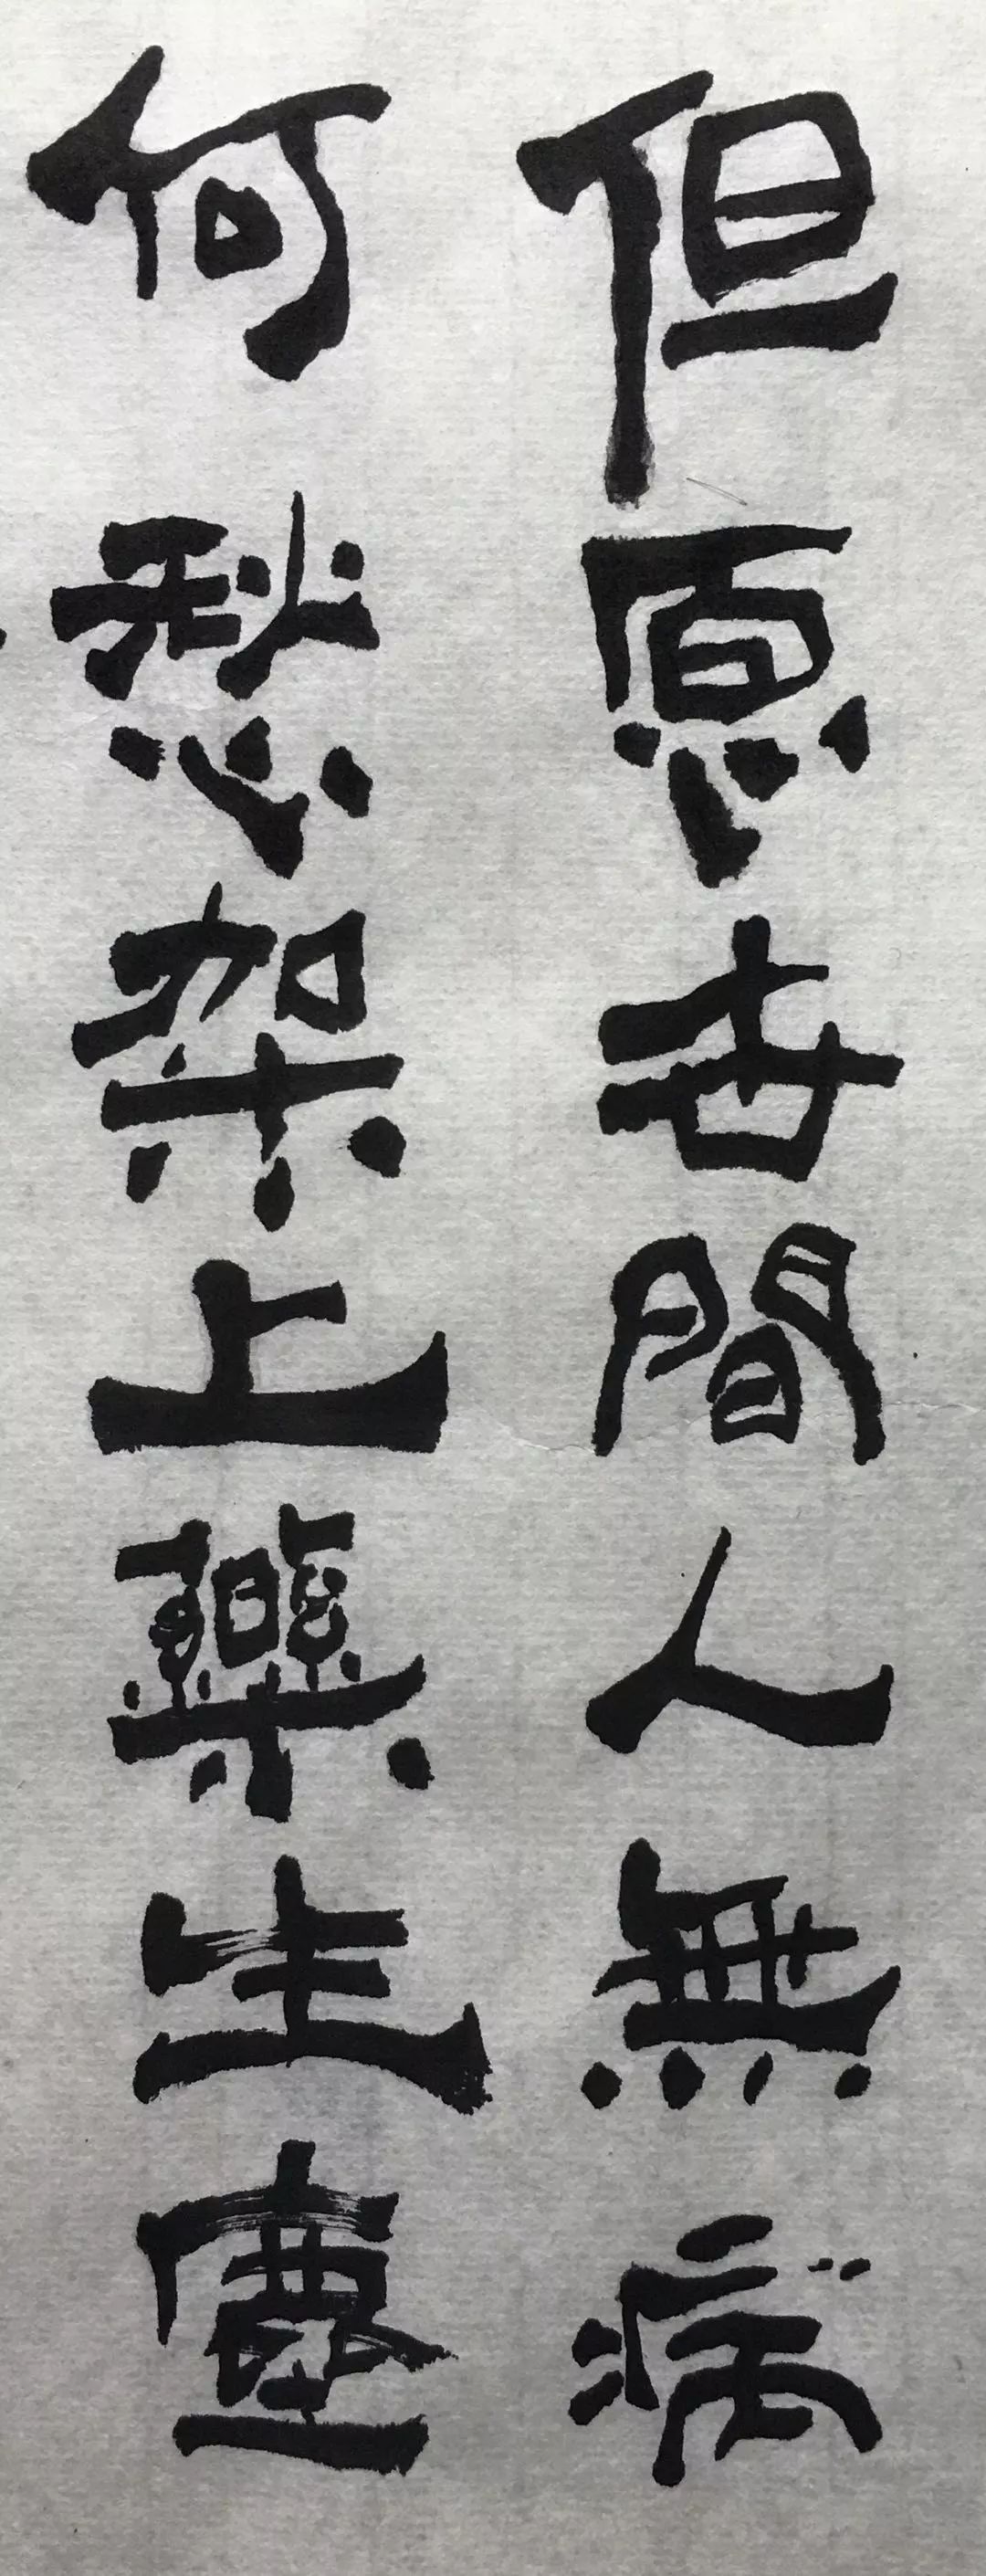 但愿世間人無病
何愁架上藥生塵